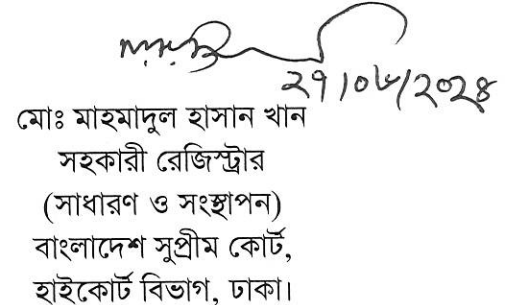 ২৭/০৮/২০২৪
মোঃ মাহমাদুল হাসান খান
সহকারী রেজিস্ট্রার
(সাধারণ ও সংস্থাপন)
বাংলাদেশ সুপ্রীম কোর্ট,
হাইকোর্ট বিভাগ, ঢাকা।